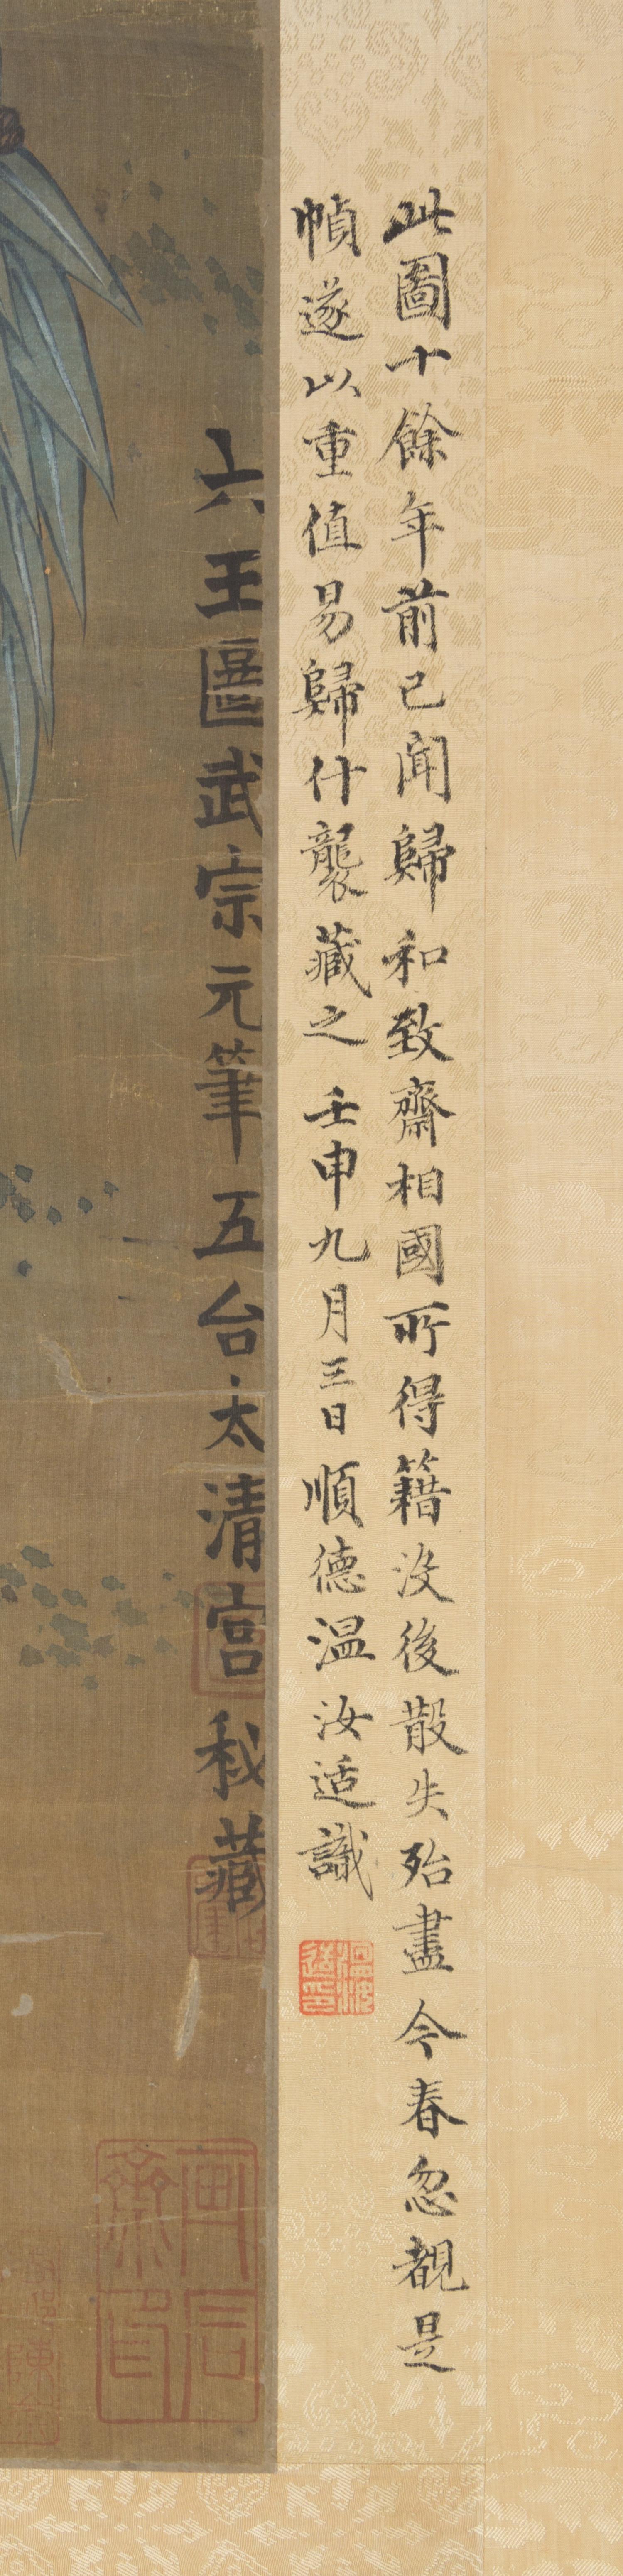 此圖十餘年前已聞歸和致齋相國所得籍没後散失殆盡今春忽覩是
幀遂以重值易歸什襲藏之 壬申九月三日順德温汝适識
温汝适印
六王圖武宗元筆五台太清宮秘藏